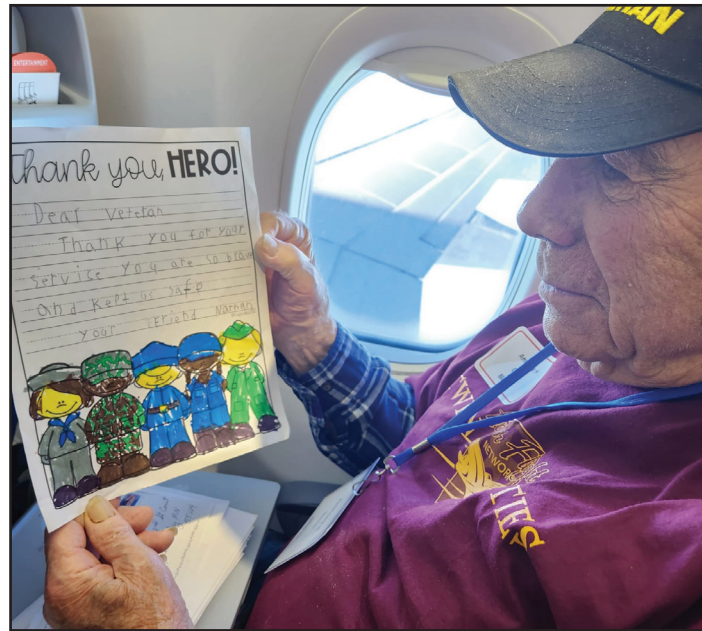 ENTERTAINMENT
Thank you, HERO!
Dear Veteran
Thank you for your
service you are so brave
and Kept us safe
your friend Nathan
NETWORK
TWIN CITIES